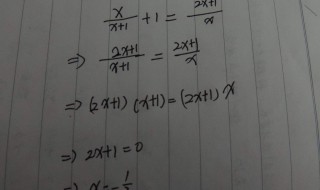 x/(x+1) + 1 = (2x+1)/x
⇒ (2x+1)/(x+1) = (2x+1)/x
⇒ (2x+1)(x+1) = (2x+1)x
⇒ 2x+1 = 0
⇒ x = -1/